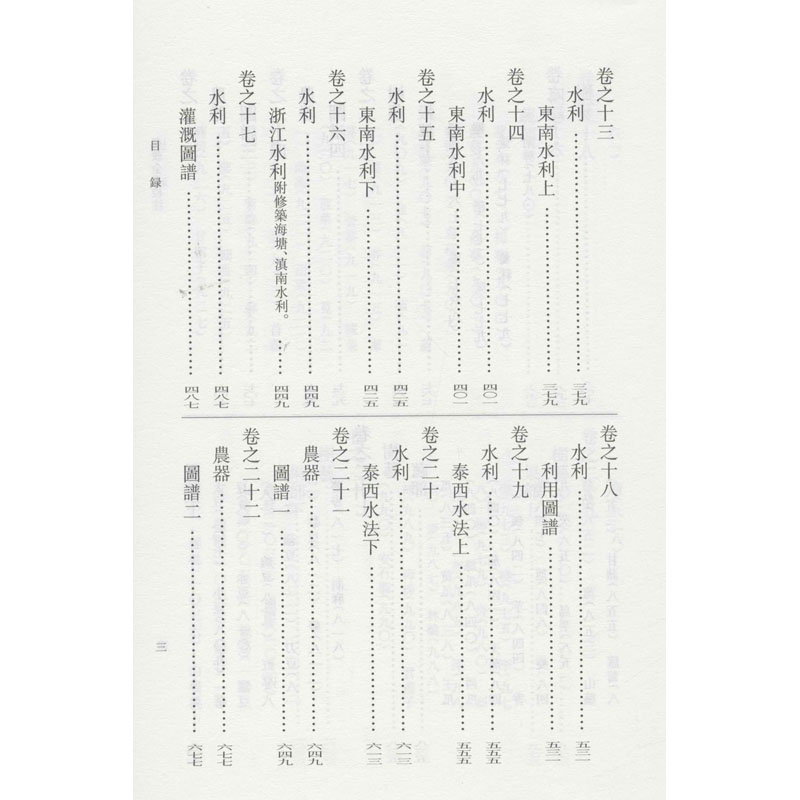 卷之十三
水利……三七九
東南水利上……三七九
卷之十四
水利……四〇一
東南水利中……四〇一
卷之十五
水利……四二五
東南水利下……四二五
卷之十六
水利……四四九
浙江水利附修築海塘、滇南水利。……四四九
卷之十七
水利……四八七
灌溉圖譜……四八七
卷之十八
水利……五三一
利用圖譜……五三一
卷之十九
水利……五五五
泰西水法上……五五五
卷之二十
水利……六一三
泰西水法下……六一三
卷之二十一
農器……六四九
圖譜一……六四九
卷之二十二
農器……六七七
圖譜二……六七七
目録
三